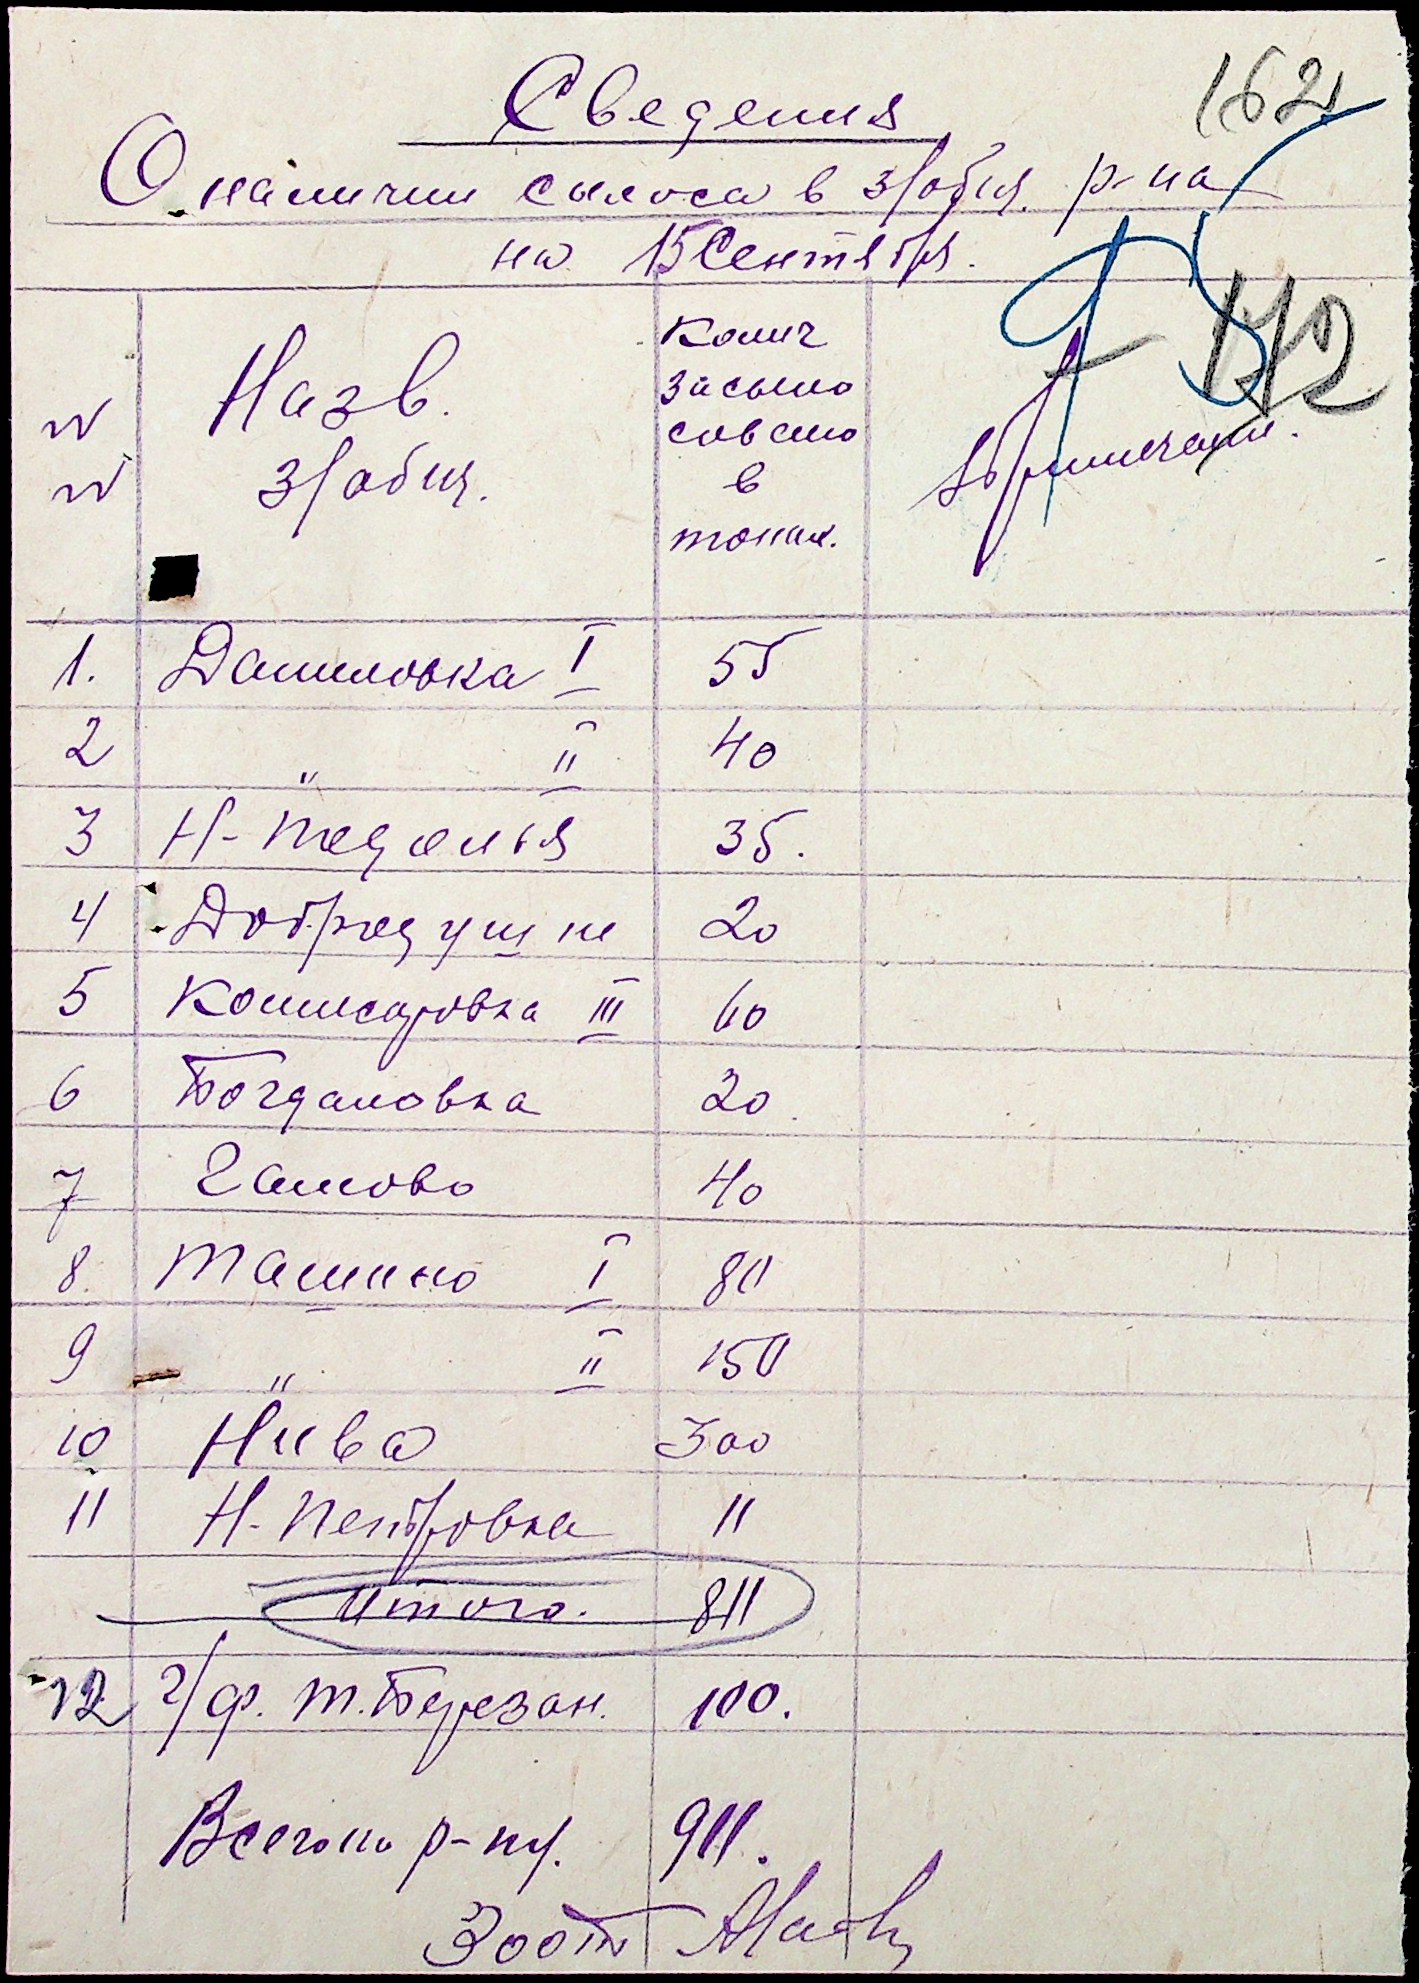 Сведения
О наличии силоса в з/общ. р-на
на 15 Сентября.
162
172
N
N
Назв.
з/общ.
Колич
засило
совано
в
тонах.
Примечание.
1. Даниловка I 55
2 " II 40
3 Н-Подолья 35.
4 Добродушин 20
5 Комисаровка III 60
6 Богдановка 20
7 Гамово 40
8 Ташино I 80
9 " II 150
10 Нива 300
11 Н-Петровка 11
Итого. 811
12 г/ф. Т.Березан. 100.
Всего по р-ну. 911.
Зоот